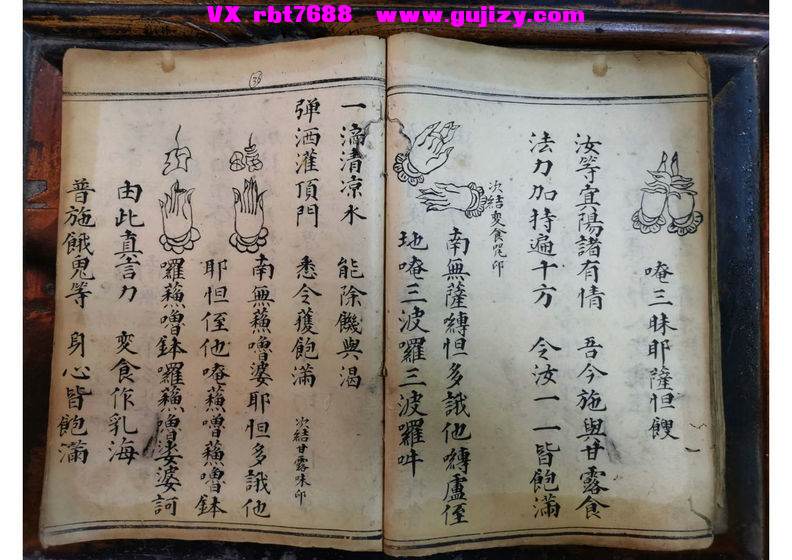 VX rbt7688 www.gujizy.com
唵三昧耶薩怛鍐
汝等宜陽諸有情 吾今施與甘露食
法力加持遍十方 令汝一一皆飽滿
次結変食咒印
南無薩縛怛多誐他縛盧侄
地唵三波羅三波羅吽
一滴清凉水 能除饑與渴
弹洒灌頂門 悉令獲飽滿
次結甘露味印
南無蘓嚕婆耶怛多誐他
耶怛侄他唵蘓嚕蘓嚕鉢
囉蘓嚕鉢囉蘓嚕娑婆訶
由此真言力 変食作乳海
普施餓鬼等 身心皆飽滿